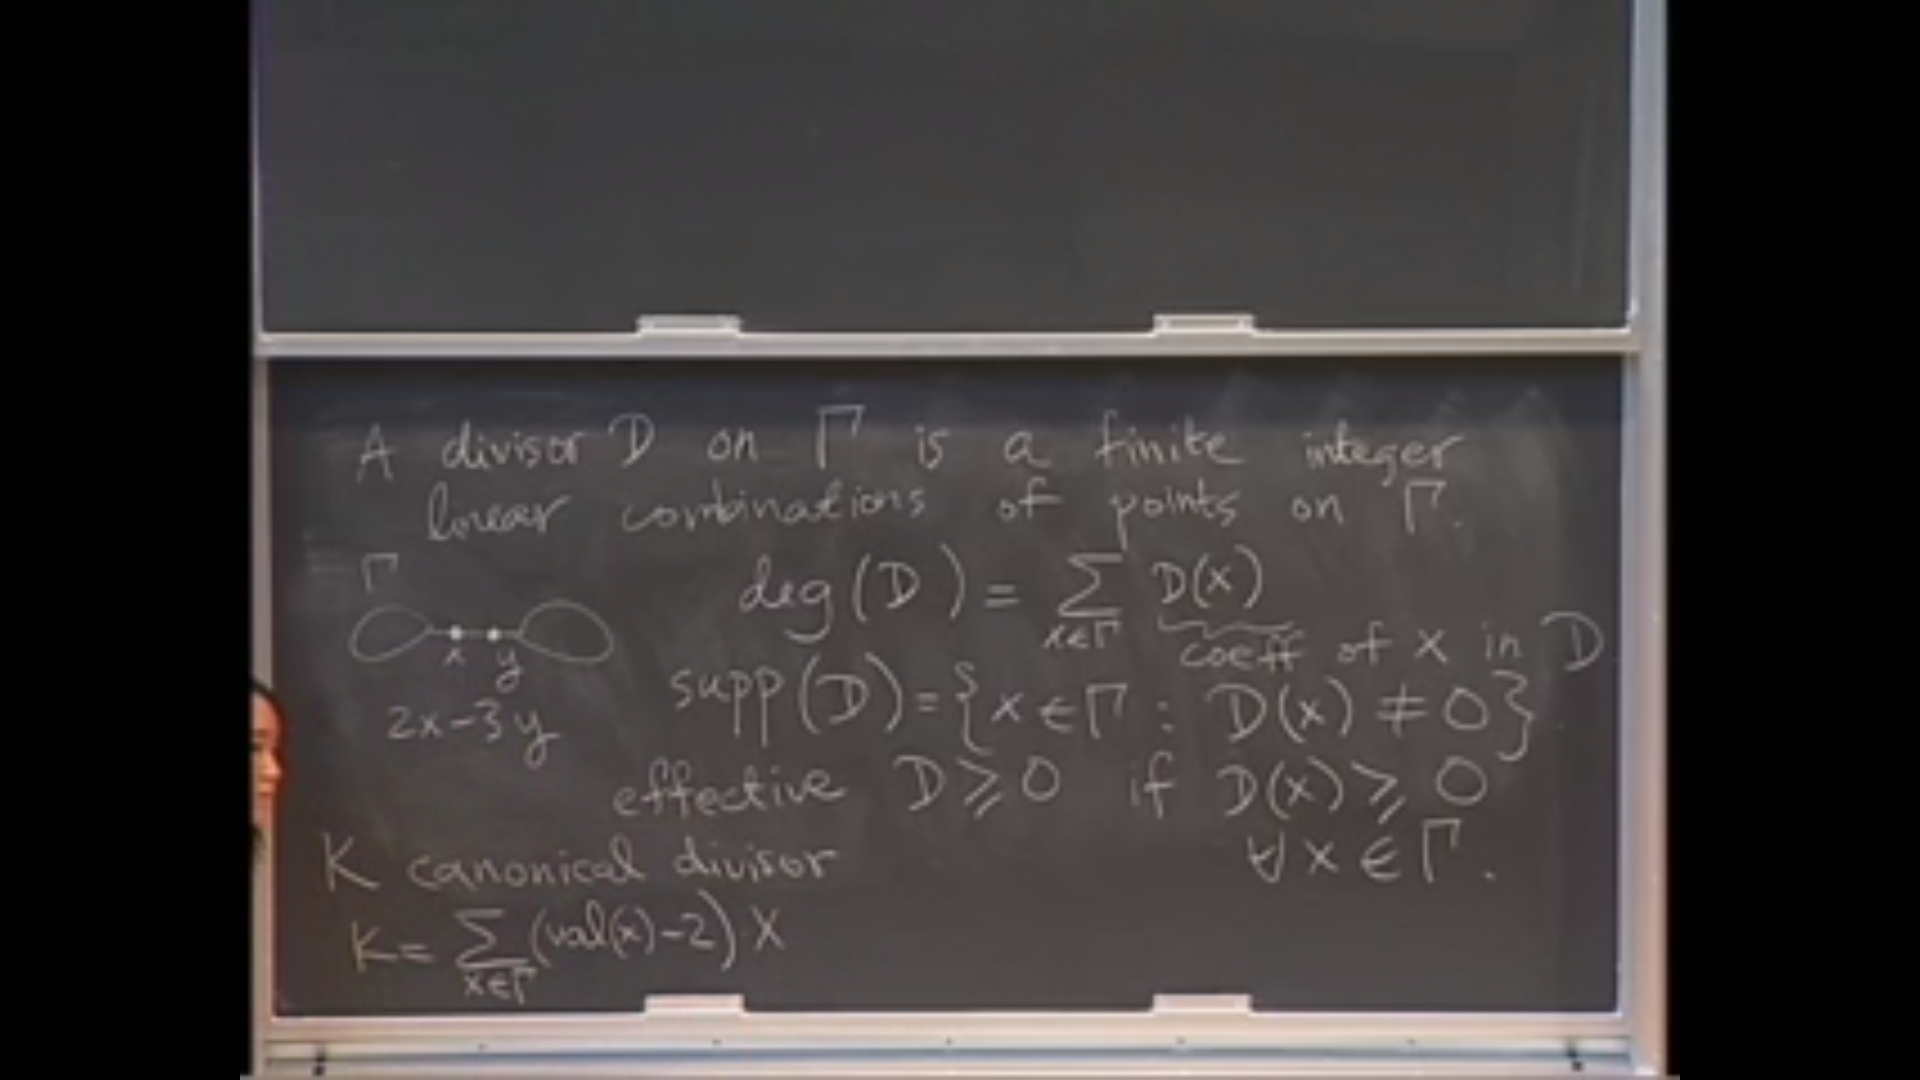 A divisor D on Γ is a finite integer
linear combinations of points on Γ.
Γ
x y
2x-3y
deg(D) = ∑ D(x)
x∈Γ
coeff of x in D
supp(D) = {x∈Γ : D(x) ≠ 0}
effective D ⩾ 0 if D(x) ⩾ 0
∀ x ∈ Γ.
K canonical divisor
K = ∑ (val(x)-2)·x
x∈Γ